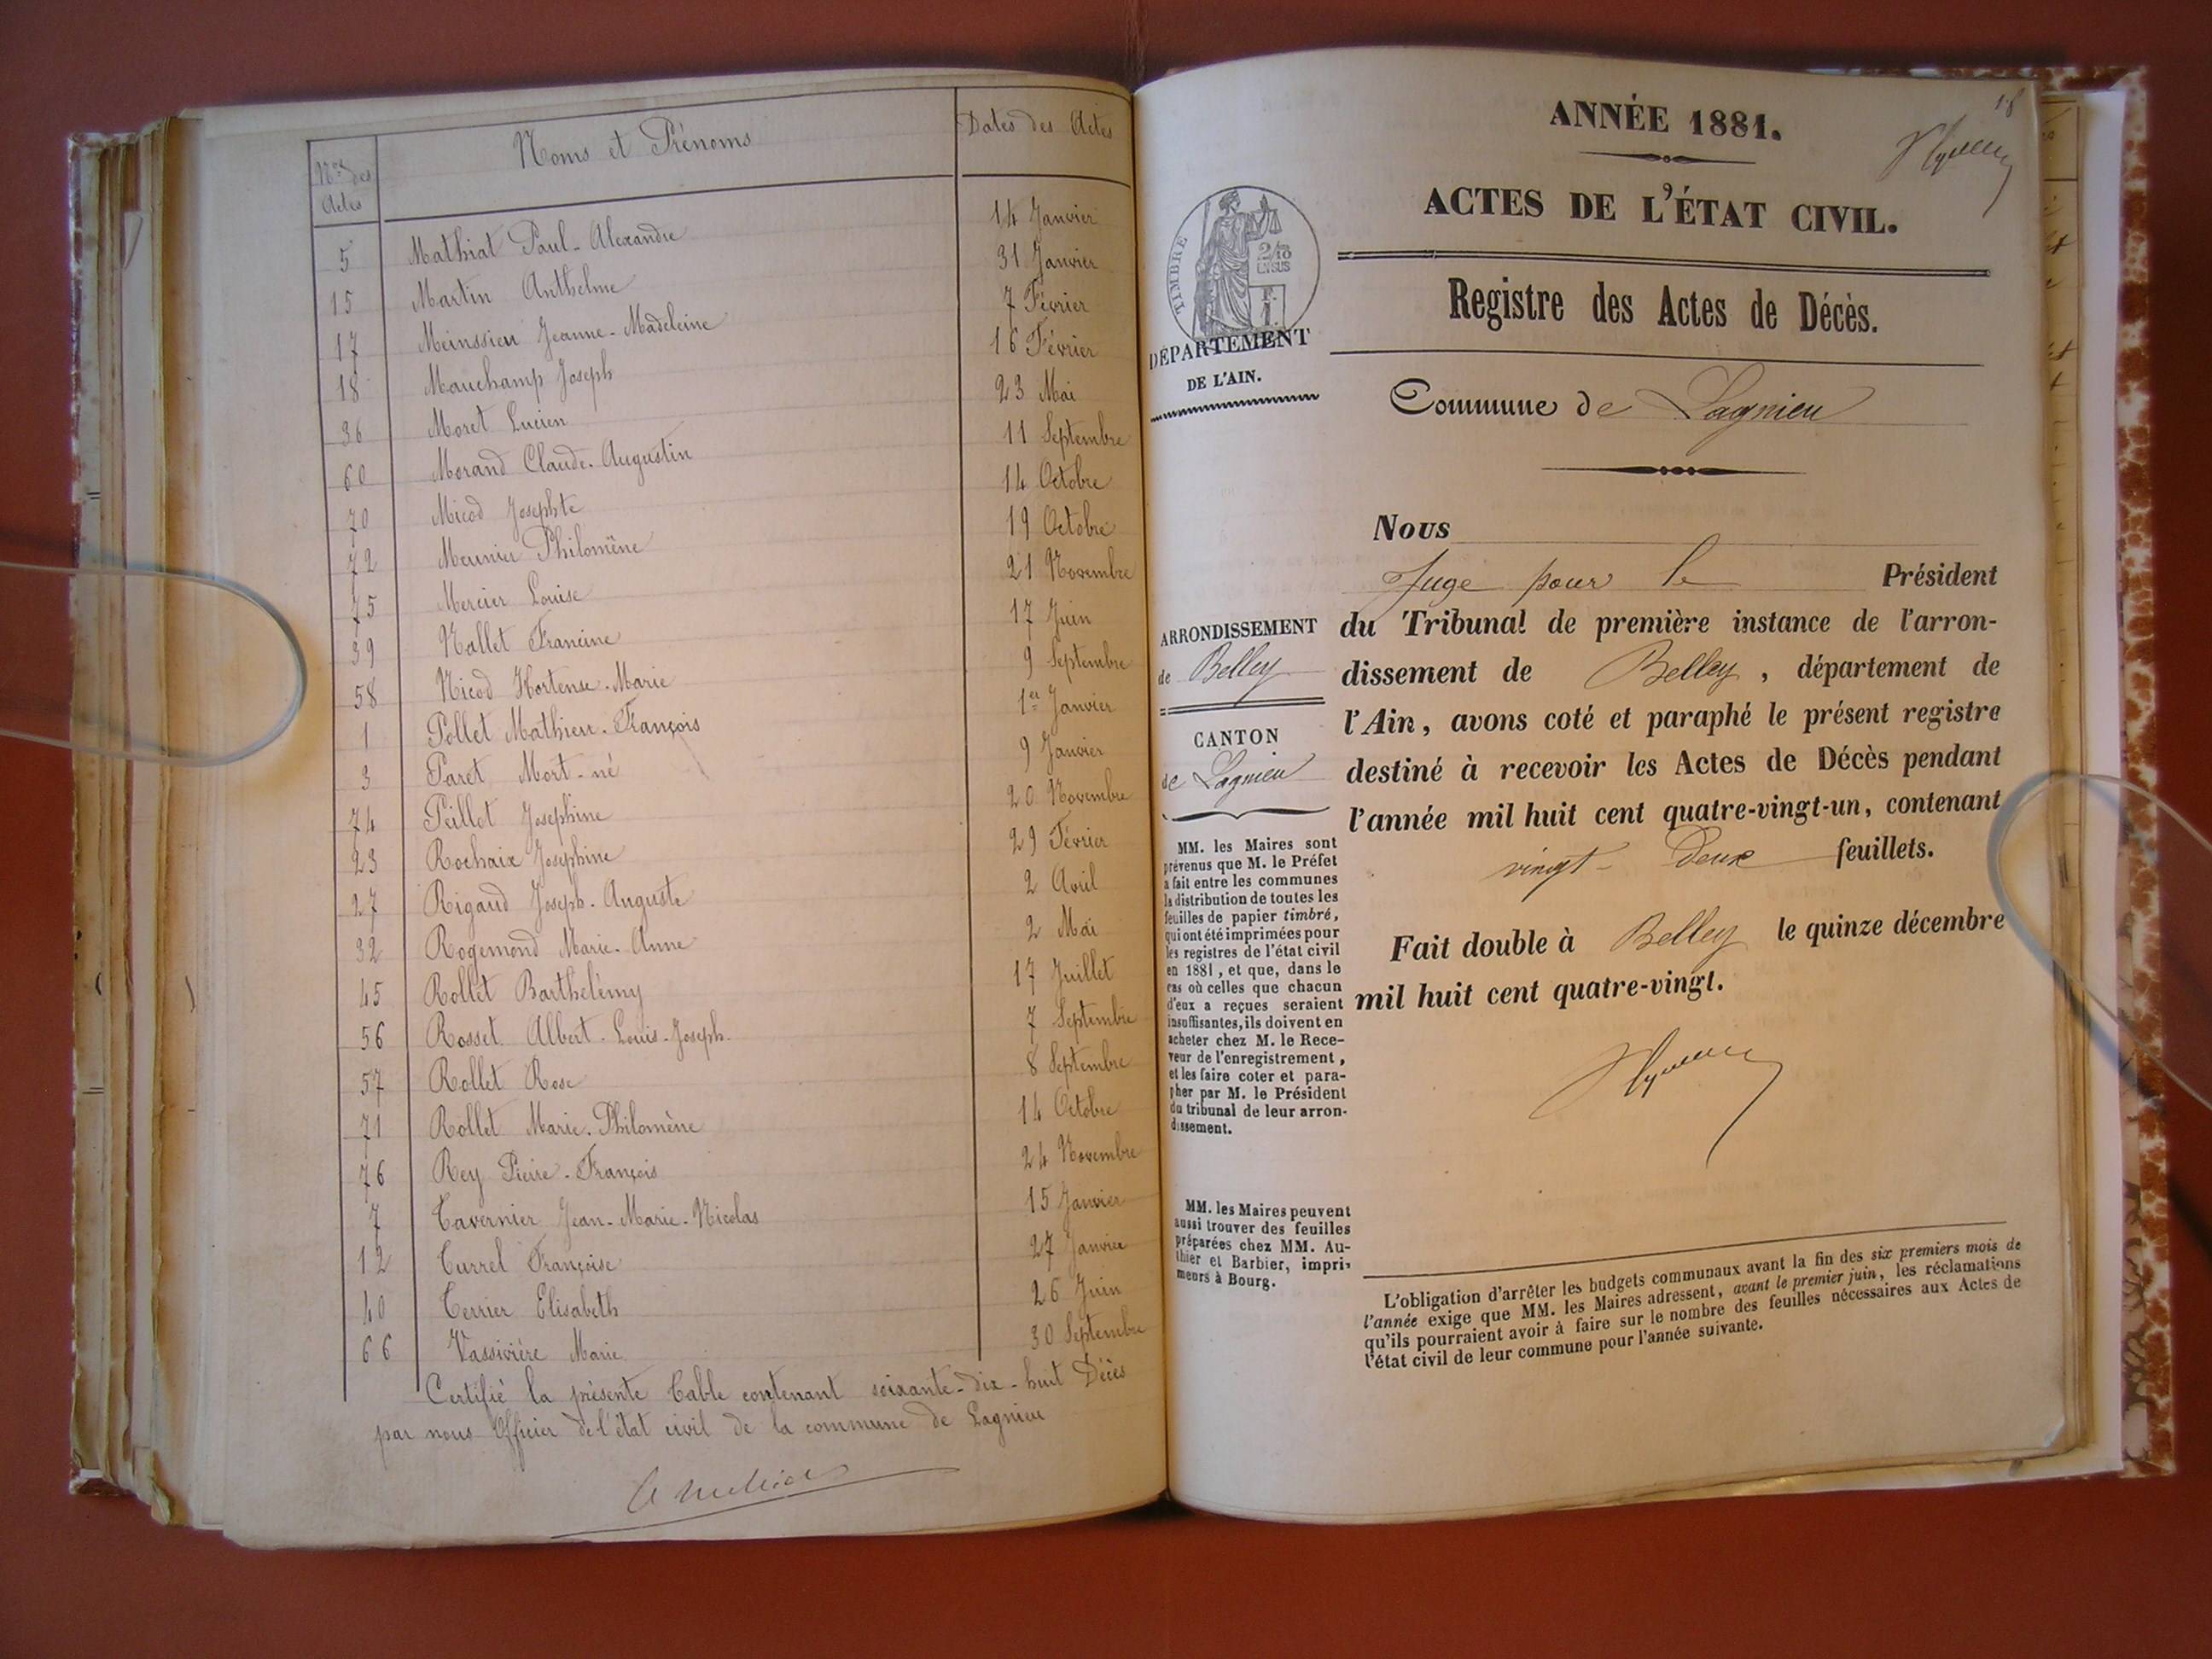 Nos des Actes
Noms et Prénoms
Dates des Actes
5 Mathiat Paul-Alexandre 14 Janvier
15 Martin Anthelme 31 Janvier
17 Meinssieu Jeanne-Madeleine 7 Février
18 Mauchamp Joseph 16 Février
36 Moret Lucien 23 Mai
60 Morand Claude-Augustin 11 Septembre
70 Micod Josephte 14 Octobre
72 Meunier Philomène 19 Octobre
75 Mercier Louise 21 Novembre
39 Nallet Francine 17 Juin
58 Nicod Hortense-Marie 9 Septembre
1 Pollet Mathieu-François 1er Janvier
3 Paret Mort-né 9 Janvier
74 Peillot Joséphine 20 Novembre
23 Rochaix Joséphine 29 Février
27 Rigaud Joseph-Auguste 2 Avril
32 Rogemond Marie-Anne 2 Mai
45 Rollet Barthélemy 17 Juillet
56 Rosset Albert-Louis-Joseph 7 Septembre
57 Rollet Rose 8 Septembre
71 Rollet Marie-Philomène 14 Octobre
76 Rey Pierre-François 24 Novembre
7 Tavernier Jean-Marie-Nicolas 15 Janvier
12 Turrel Françoise 27 Janvier
40 Terrier Elisabeth 26 Juin
66 Vassivière Marie 30 Septembre
Certifié la présente Table contenant soixante-dix-huit Décès
par nous Officier de l'état civil de la commune de Lagnieu
18
ANNÉE 1881.
ACTES DE L'ÉTAT CIVIL.
Registre des Actes de Décès.
TIMBRE
2/10
EN SUS
DÉPARTEMENT
DE L'AIN.
Commune de Lagnieu
Nous
Juge pour le Président
du Tribunal de première instance de l'arron-
dissement de Belley, département de
l'Ain, avons coté et paraphé le présent registre
destiné à recevoir les Actes de Décès pendant
l'année mil huit cent quatre-vingt-un, contenant
vingt-deux feuillets.
Fait double à Belley le quinze décembre
mil huit cent quatre-vingt.
ARRONDISSEMENT
de Belley
CANTON
de Lagnieu
MM. les Maires sont
prévenus que M. le Préfet
a fait entre les communes
la distribution de toutes les
feuilles de papier timbré,
qui ont été imprimées pour
les registres de l'état civil
en 1881, et que, dans le
cas où celles que chacun
d'eux a reçues seraient
insuffisantes, ils doivent en
acheter chez M. le Rece-
veur de l'enregistrement,
et les faire coter et para-
pher par M. le Président
du tribunal de leur arron-
dissement.
MM. les Maires peuvent
aussi trouver des feuilles
préparées chez MM. Au-
thier et Barbier, impri-
meurs à Bourg.
L'obligation d'arrêter les budgets communaux avant la fin des six premiers mois de
l'année exige que MM. les Maires adressent, avant le premier juin, les réclamations
qu'ils pourraient avoir à faire sur le nombre des feuilles nécessaires aux Actes de
l'état civil de leur commune pour l'année suivante.